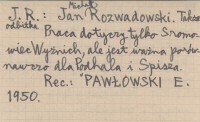 J.R.: Jan Michał Rozwadowski. Także
odbitka. Praca dotyczy tylko Sromo-
wiec Wyżnich, ale jest ważna porów-
nawczo dla Podhala i Spisza.
Rec.: PAWŁOWSKI E.
1950.